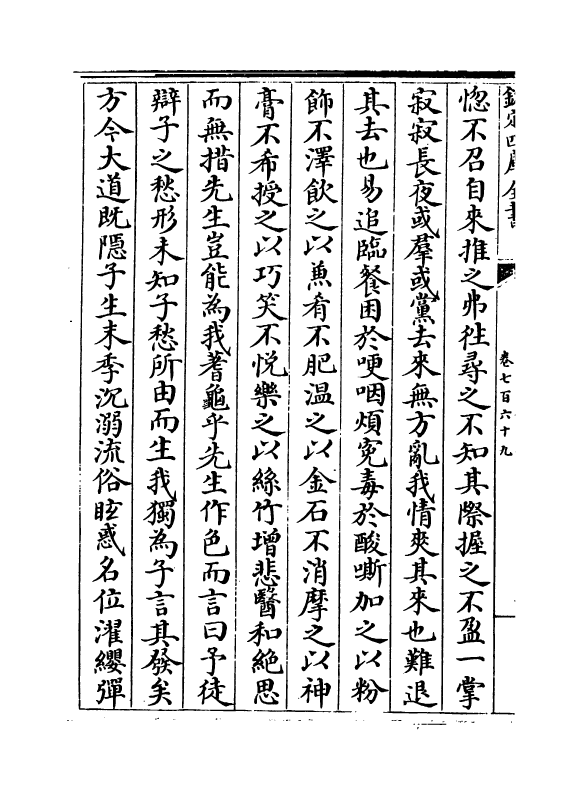 欽定四庫全書
卷七百六十九
惚不召自來推之弗往尋之不知其際握之不盈一掌
寂寂長夜或羣或黨去來無方亂我情爽其來也難退
其去也易追臨餐困於哽咽煩冤毒於酸嘶加之以粉
飾不澤飲之以兼肴不肥温之以金石不消摩之以神
膏不希授之以巧笑不悦樂之以絲竹增悲醫和絶思
而無措先生豈能為我蓍龜乎先生作色而言曰予徒
辯子之愁形未知子愁所由而生我獨為子言其發矣
方今大道既隱子生末季沉溺流俗眩惑名位濯纓彈